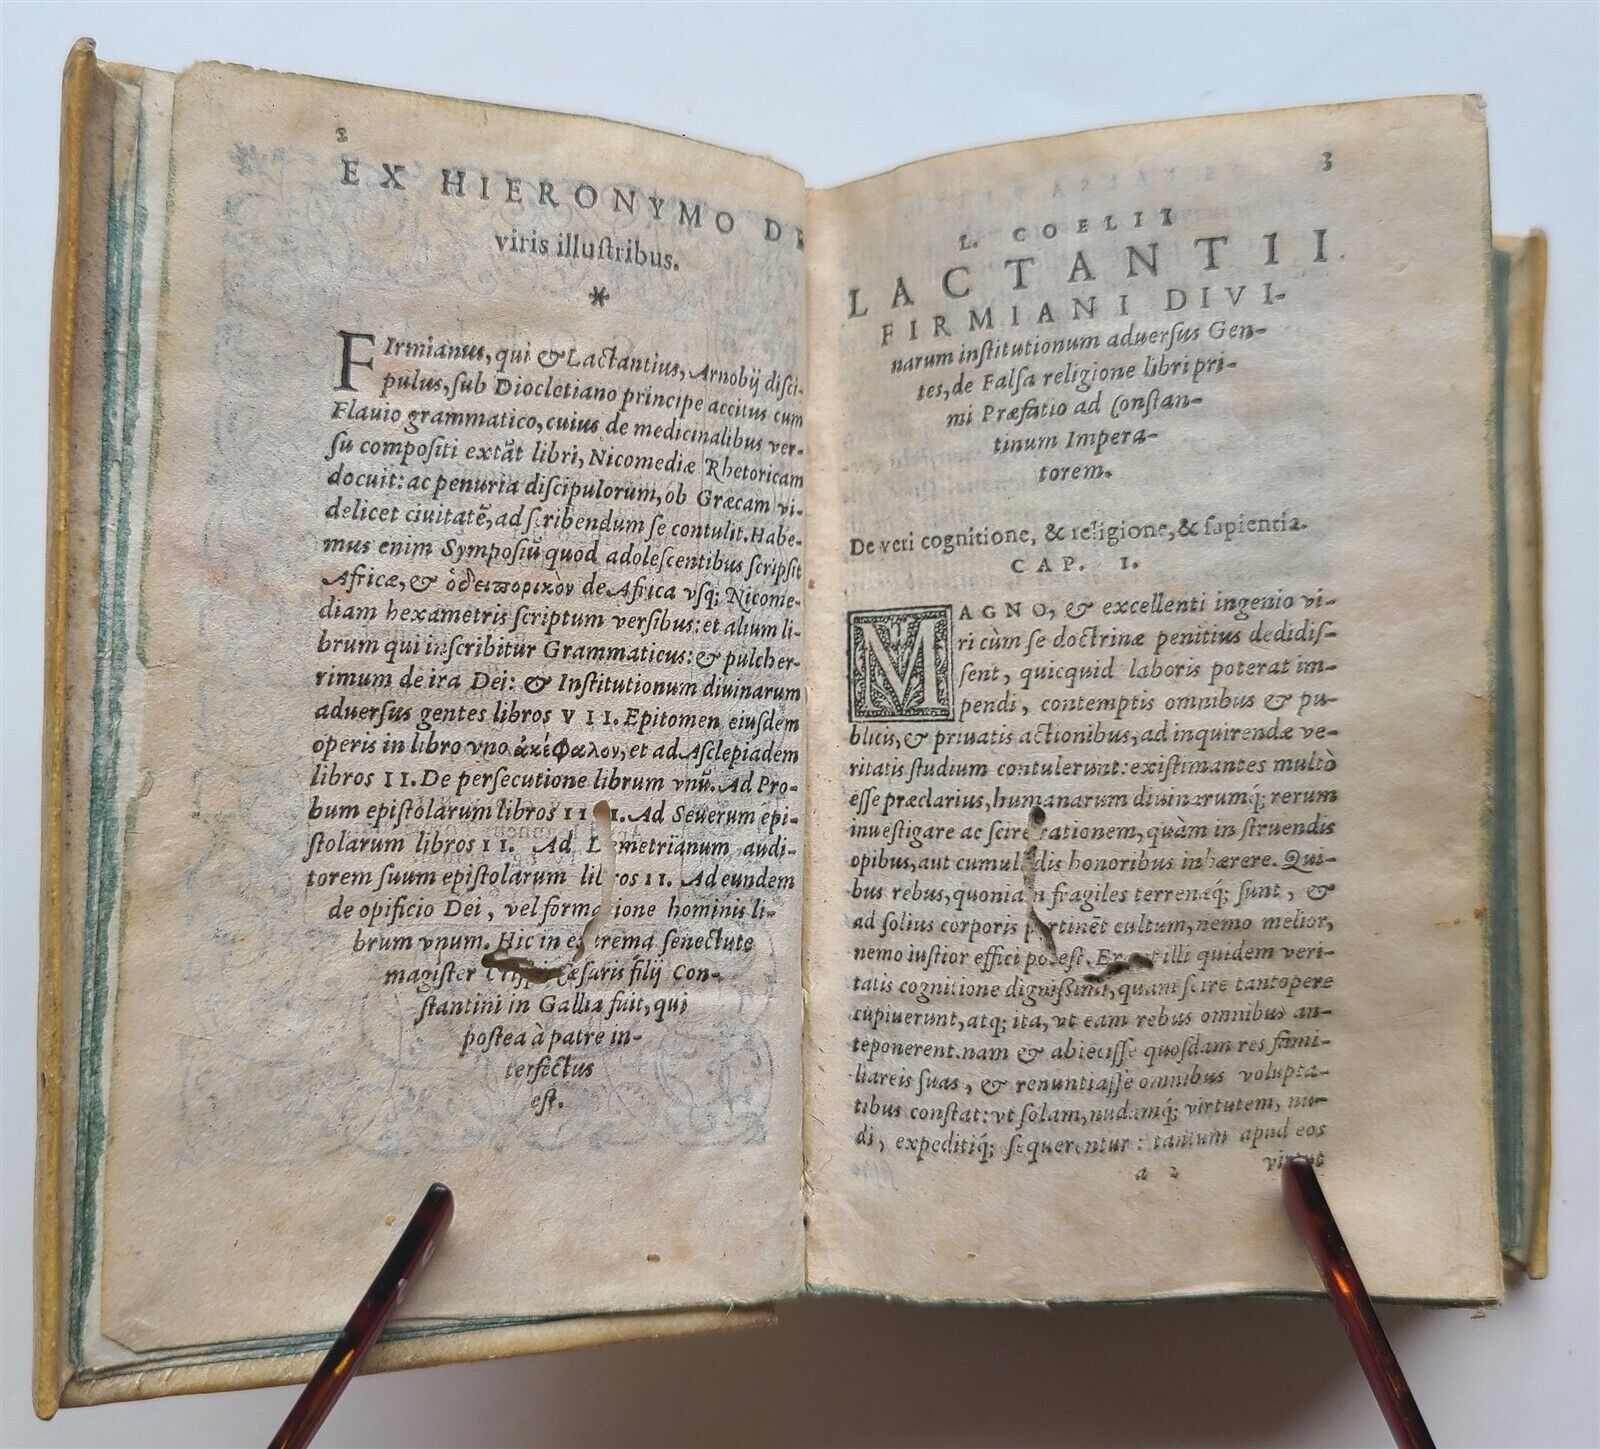 2
EX HIERONYMO DE
viris illuſtribus.
*
FIrmianus, qui & Lactantius, Arnobij diſci-
pulus, ſub Diocletiano principe accitus cum
Flauio grammatico, cuius de medicinalibus ver-
ſu compoſiti extāt libri, Nicomediæ Rhetoricam
docuit: ac penuria diſcipulorum, ob Græcam vi-
delicet ciuitatē, ad ſcribendum ſe contulit. Habe-
mus enim Sympoſiū quod adoleſcentibus ſcripſit
Africæ, & ὁδειπορικὸν de Africa vſq; Nicome-
diam hexametris ſcriptum verſibus: et alium li-
brum qui inſcribitur Grammaticus: & pulcher-
rimum de ira Dei: & Inſtitutionum diuinarum
aduerſus gentes libros VII. Epitomen eiuſdem
operis in libro vno ἀκέφαλον, et ad Aſclepiadem
libros II. De perſecutione librum vnū. Ad Pro-
bum epiſtolarum libros IIII. Ad Seuerum epi-
ſtolarum libros II. Ad Demetrianum audi-
torem ſuum epiſtolarum libros II. Ad eundem
de opificio Dei, vel formatione hominis li-
brum vnum. Hic in extrema ſenectute
magiſter Cæſaris filij Con-
ſtantini in Gallia fuit, qui
poſtea à patre in-
terfectus
eſt.
3
L. COELII
LACTANTII
FIRMIANI DIVI-
narum inſtitutionum aduerſus Gen-
tes, de Falſa religione libri pri-
mi Præfatio ad Conſtan-
tinum Impera-
torem.
De veri cognitione, & religione, & ſapientia.
CAP. I.
MAGNO, & excellenti ingenio vi-
ri cùm ſe doctrinæ penitius dedidiſ-
ſent, quicquid laboris poterat im-
pendi, contemptis omnibus & pu-
blicis, & priuatis actionibus, ad inquirendæ ve-
ritatis ſtudium contulerunt: exiſtimantes multò
eſſe præclarius, humanarum diuinarumq́; rerum
inueſtigare ac ſcire rationem, quàm in ſtruendis
opibus, aut cumulādis honoribus inhærere. Qui-
bus rebus, quoniam fragiles terrenæq́; ſunt, &
ad ſolius corporis pertinēt cultum, nemo melior,
nemo iuſtior effici poteſt. Erant illi quidem veri-
tatis cognitione digniſſimi, quam ſcire tantopere
cupiuerunt, atq; ita, vt eam rebus omnibus an-
teponerent. nam & abieciſſe quoſdam res fami-
liareis ſuas, & renuntiaſſe omnibus volupta-
tibus conſtat: vt ſolam, nudamq́; virtutem, nu-
di, expeditiq́; ſequerentur: tantum apud eos
a 2